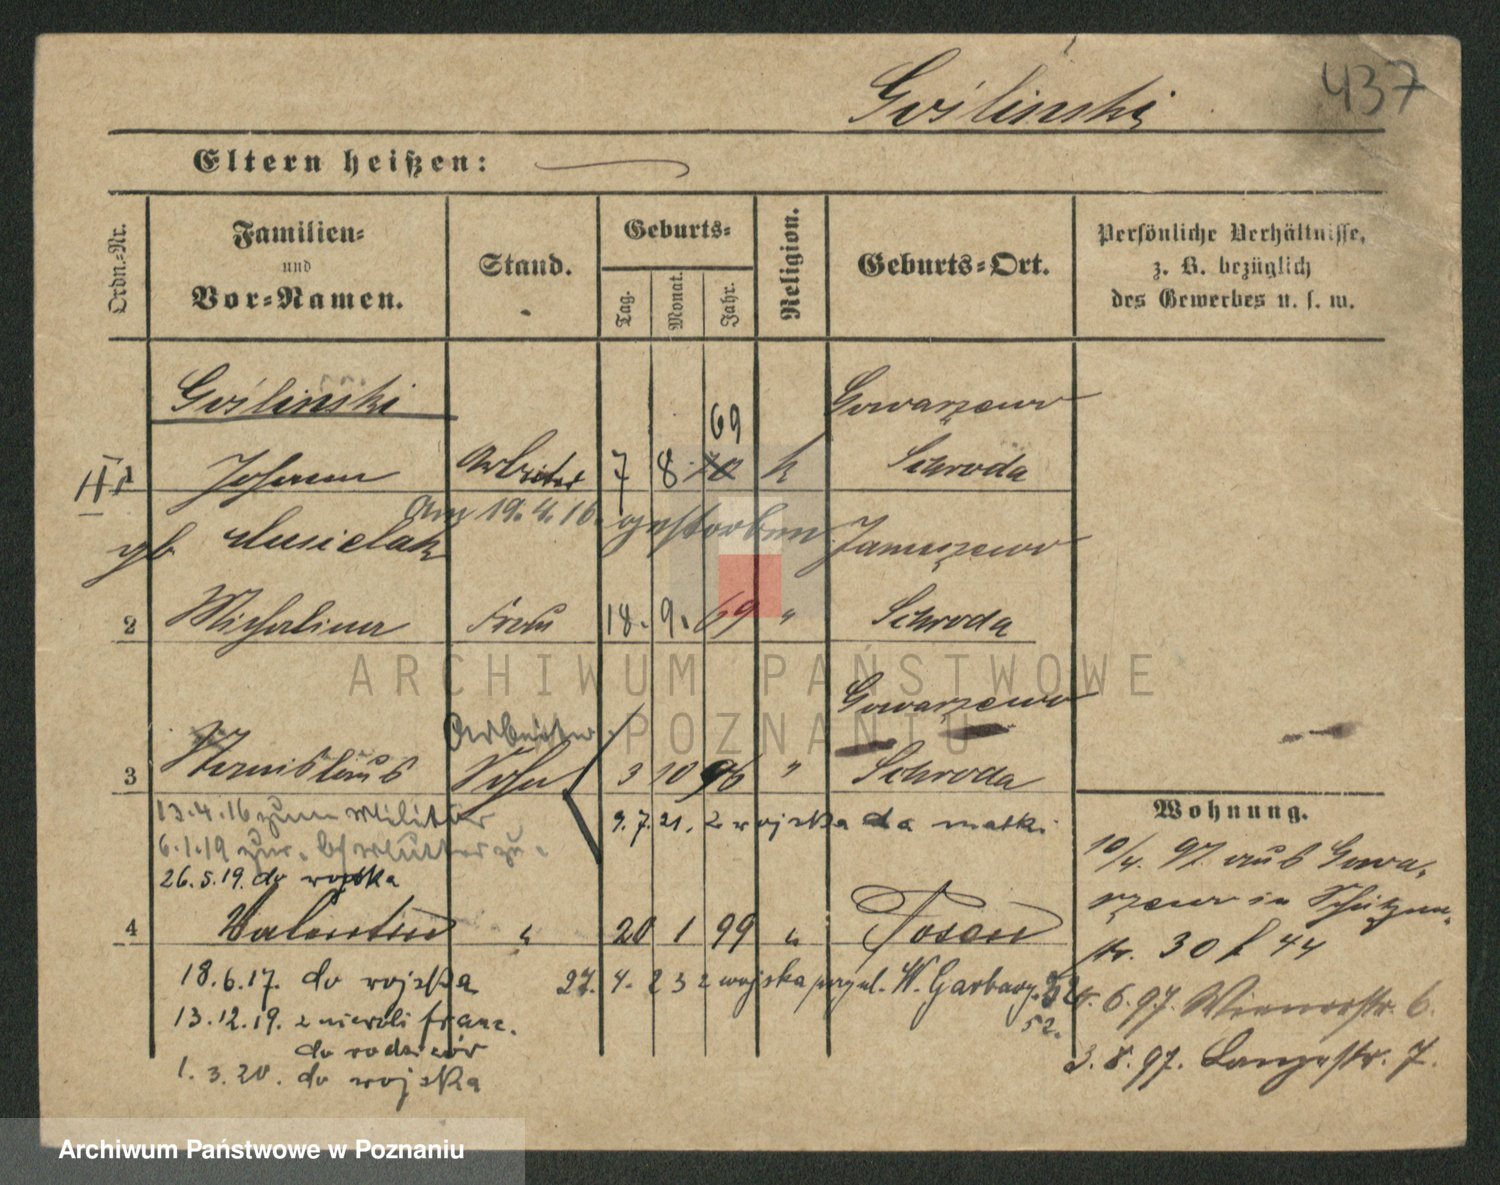 437
Gośliński
Eltern heißen:
Ordn.-Nr.
Familien-
und
Vor-Namen.
Stand.
Geburts-
Tag.
Monat.
Jahr.
Religion.
Geburts-Ort.
Persönliche Verhältnisse,
z. B. bezüglich
des Gewerbes u. s. w.
Gośliński
69
Gowarzewo
1 Johann Arbeiter 7 8 70 k Schroda
am 19.4.16. gestorben
gb Musielak Januszewo
2 Micheline Frau 18. 9. 69 " Schroda
Gowarzewo
Arbeiter
3 Stanislaus Sohn 3 10 96 " Schroda
13.4.16 zum Militär
9.7.21. z wojska do matki
6.1.19 zur Mutter zu.
26.5.19. do wojska
4 Valentin " 20 1 99 " Posen
18.6.17. do wojska
27. 4. 23 z wojska przyul. W. Garbary
52.
13.12.19. z niewoli franc.
do rodziców
1.3.20. do wojska
Wohnung.
10/4. 97. aus Gowa-
rzewo in Schützen-
str. 30 f 44
6.97. Wienerstr. 6.
3.8.97. Langestr. 7.
ARCHIWUM PAŃSTWOWE
W POZNANIU
Archiwum Państwowe w Poznaniu